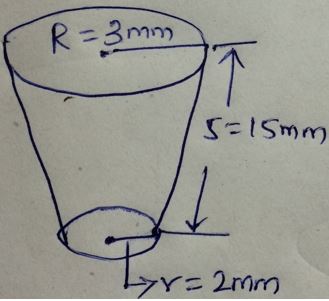 R = 3mm
S = 15mm
r = 2mm